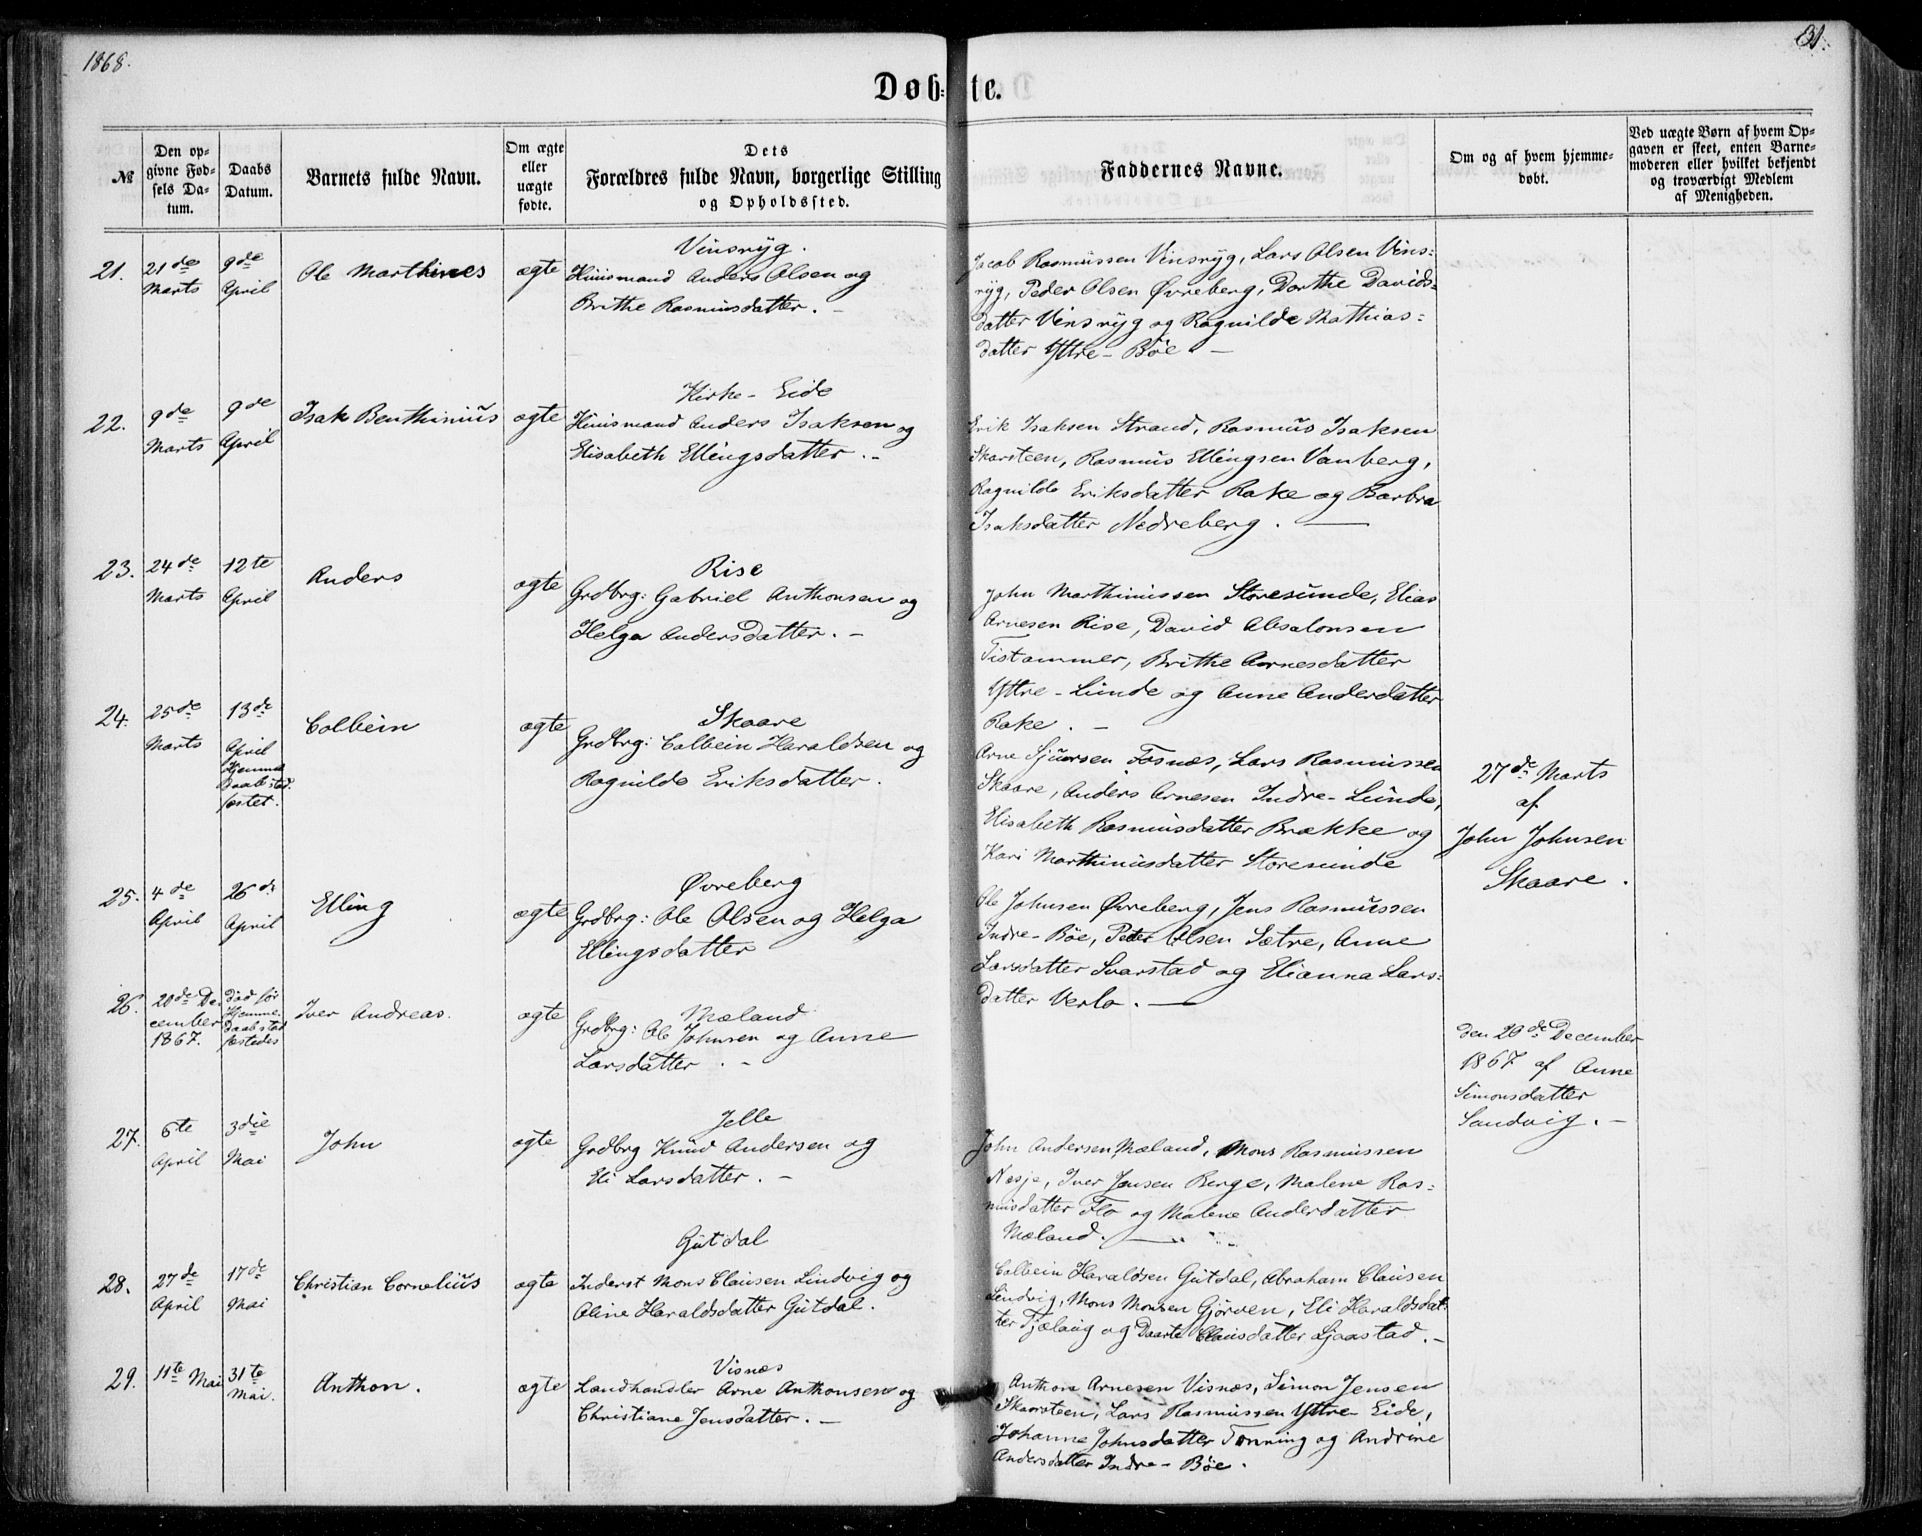 1868.
31.
Døb- te.
№
Den op-
givne Fød-
sels Da-
tum.
Daabs
Datum.
Barnets fulde Navn.
Om ægte
eller
uægte
fødte.
Dets
Forældres fulde Navn, borgerlige Stilling
og Opholdssted.
Faddernes Navne.
Om og af hvem hjemme-
døbt.
Ved uægte Børn af hvem Op-
gaven er skeet, enten Barne-
moderen eller hvilket bekjendt
og troværdigt Medlem
af Menigheden.
21.
21de
Marts
9de
April
Ole Marthines
ægte
Vinsryg.
Huusmand Anders Olsen og
Brithe Rasmusdatter. -
Jacob Rasmussen Vinsryg, Lars Olsen Vins=
ryg, Peder Olsen Øvreberg, Dorthe Davids=
datter Vinsryg og Ragnilde Mathias=
datter Yttre- Böe. -
22.
9de
Marts
9de
April
Isak Benthinius
ægte
Kirke- Eide
Huusmand Anders Isaksen og
Elisabeth Ellingsdatter. -
Erik Isaksen Strand, Rasmus Isaksen
Skarsteen, Rasmus Ellingsen Vanberg,
Ragnilde Eriksdatter Rake og Barbra
Isaksdatter Nedreberg. -
23.
24de
Marts
12te
April
Anders
ægte
Rise
Grdbrg: Gabriel Anthonsen og
Helga Andersdatter. -
John Marthinussen Storesunde, Elias
Arnesen Rise, David Absalonsen
Tistammer, Brithe Arnesdatter
Yttre- Lunde og Anne Andersdatter
Rake. -
24.
25de
Marts
13de
April
Hjemme
Daab stad
fæstet.
Colbein
ægte
Skaare
Grdbrg: Colbein Haraldsen og
Ragnilde Eriksdatter.
Arne Sjursen Fosnæs, Lars Rasmussen
Skaare, Anders Arnesen Indre- Lunde,
Elisabeth Rasmusdatter Brække og
Kari Marthinusdatter Storesunde
27de Marts
af
John Johnsen
Skaare.
25.
4de
April
26de
April
Elling
ægte
Øvreberg
Grdbrg: Ole Olsen og Helga
Ellingsdatter
Ole Johnsen Øvreberg, Jens Rasmussen
Indre- Böe, Peder Olsen Sætre, Anne
Larsdatter Svarstad og Elianna Lars=
datter Verlo. -
26.
20de De-
cember
1867.
død før
Hjemme
daab stad
fæstedes
Iver Andreas.
ægte
Mæland
Grdbrg: Ole Johnsen og Anne
Larsdatter. -
den 29de December
1867 af Anne
Simonsdatter
Sandvig. -
27.
6te
April
3die
Mai
John
ægte
Jelle
Grdbrg Knud Andersen og
Eli Larsdatter. -
John Andersen Mæland, Mons Rasmussen
Nesje, Iver Jensen Berge, Malene Ras=
musdatter Flo og Malene Andersdatter
Mæland. -
28.
27de
April
17de
Mai
Christian Cornelius
ægte
Gutdal
Inderst Mons Clausen Lindvig og
Oline Haraldsdatter Gutdal.
Colbein Haraldsen Gutdal, Abraham Clausen
Lindvig, Mons Monsen Gjörven, Eli Haraldsdat=
ter Tjælaug og Daarte Clausdatter Ljaastad. -
29.
11te Mai
31te
Mai.
Anthon.
ægte
Visnæs
Landhandler Arne Anthonsen og
Christiane Jensdatter. -
Anthon Arnesen Visnæs, Simon Jensen
Skarsteen, Lars Rasmussen Yttre- Eide,
Johanne Johnsdatter Tonning og Andrine
Andersdatter Indre- Böe.